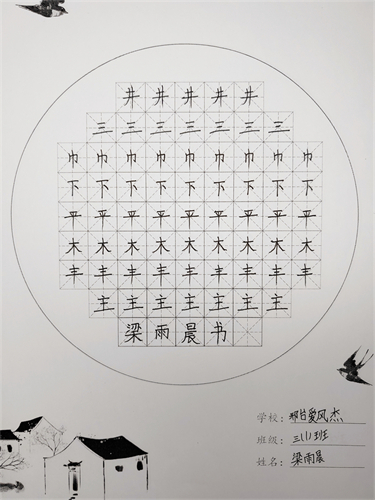 井井井井井
三三三三三三三
巾巾巾巾巾巾巾巾巾
下下下下下下下下下
平平平平平平平平平
木木木木木木木木木
丰丰丰丰丰丰丰丰丰
主主主主主主主
梁雨晨书
学校：邢台爱风杰
班级：三(1)班
姓名：梁雨晨